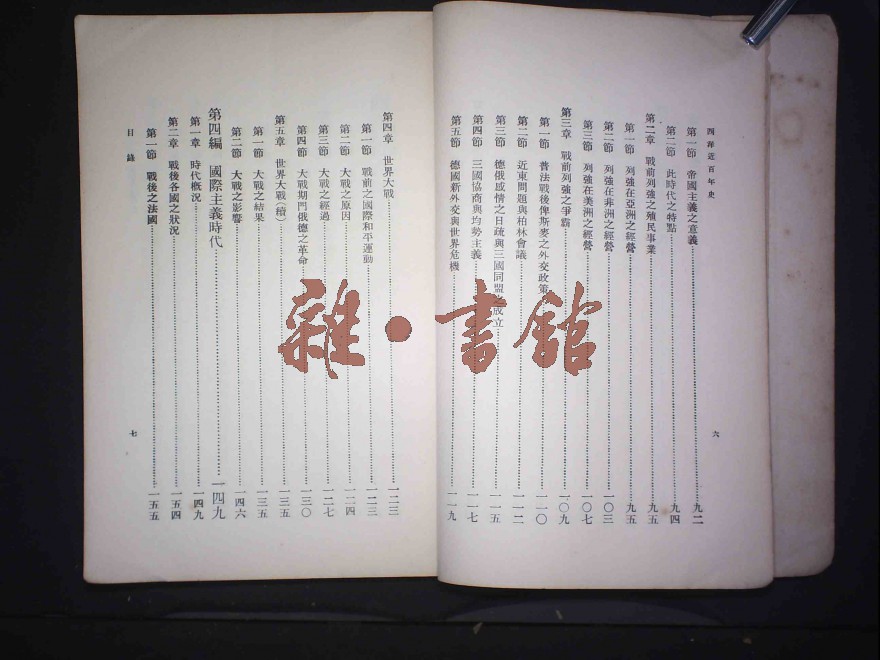 西洋近百年史
第一節 帝國主義之意義 九二
第二節 此時代之特點 九四
第二章 戰前列強之殖民事業 九五
第一節 列強在亞洲之經營 九五
第二節 列強在非洲之經營 一〇三
第三節 列強在美洲之經營 一〇七
第三章 戰前列強之爭霸 一〇九
第一節 普法戰後俾斯麥之外交政策 一一〇
第二節 近東問題與柏林會議 一一二
第三節 德俄感情之日疏與三國同盟之成立 一一五
第四節 三國協商與均勢主義 一一七
第五節 德國新外交與世界危機 一一九
六
第四章 世界大戰 一二三
第一節 戰前之國際和平運動 一二三
第二節 大戰之原因 一二四
第三節 大戰之經過 一二七
第四節 大戰期間俄德之革命 一三〇
第五章 世界大戰(續) 一三五
第一節 大戰之結果 一三五
第二節 大戰之影響 一四六
第四編 國際主義時代 一四九
第一章 時代概況 一四九
第二章 戰後各國之狀況 一五四
第一節 戰後之法國 一五五
目錄
七
雜·書館